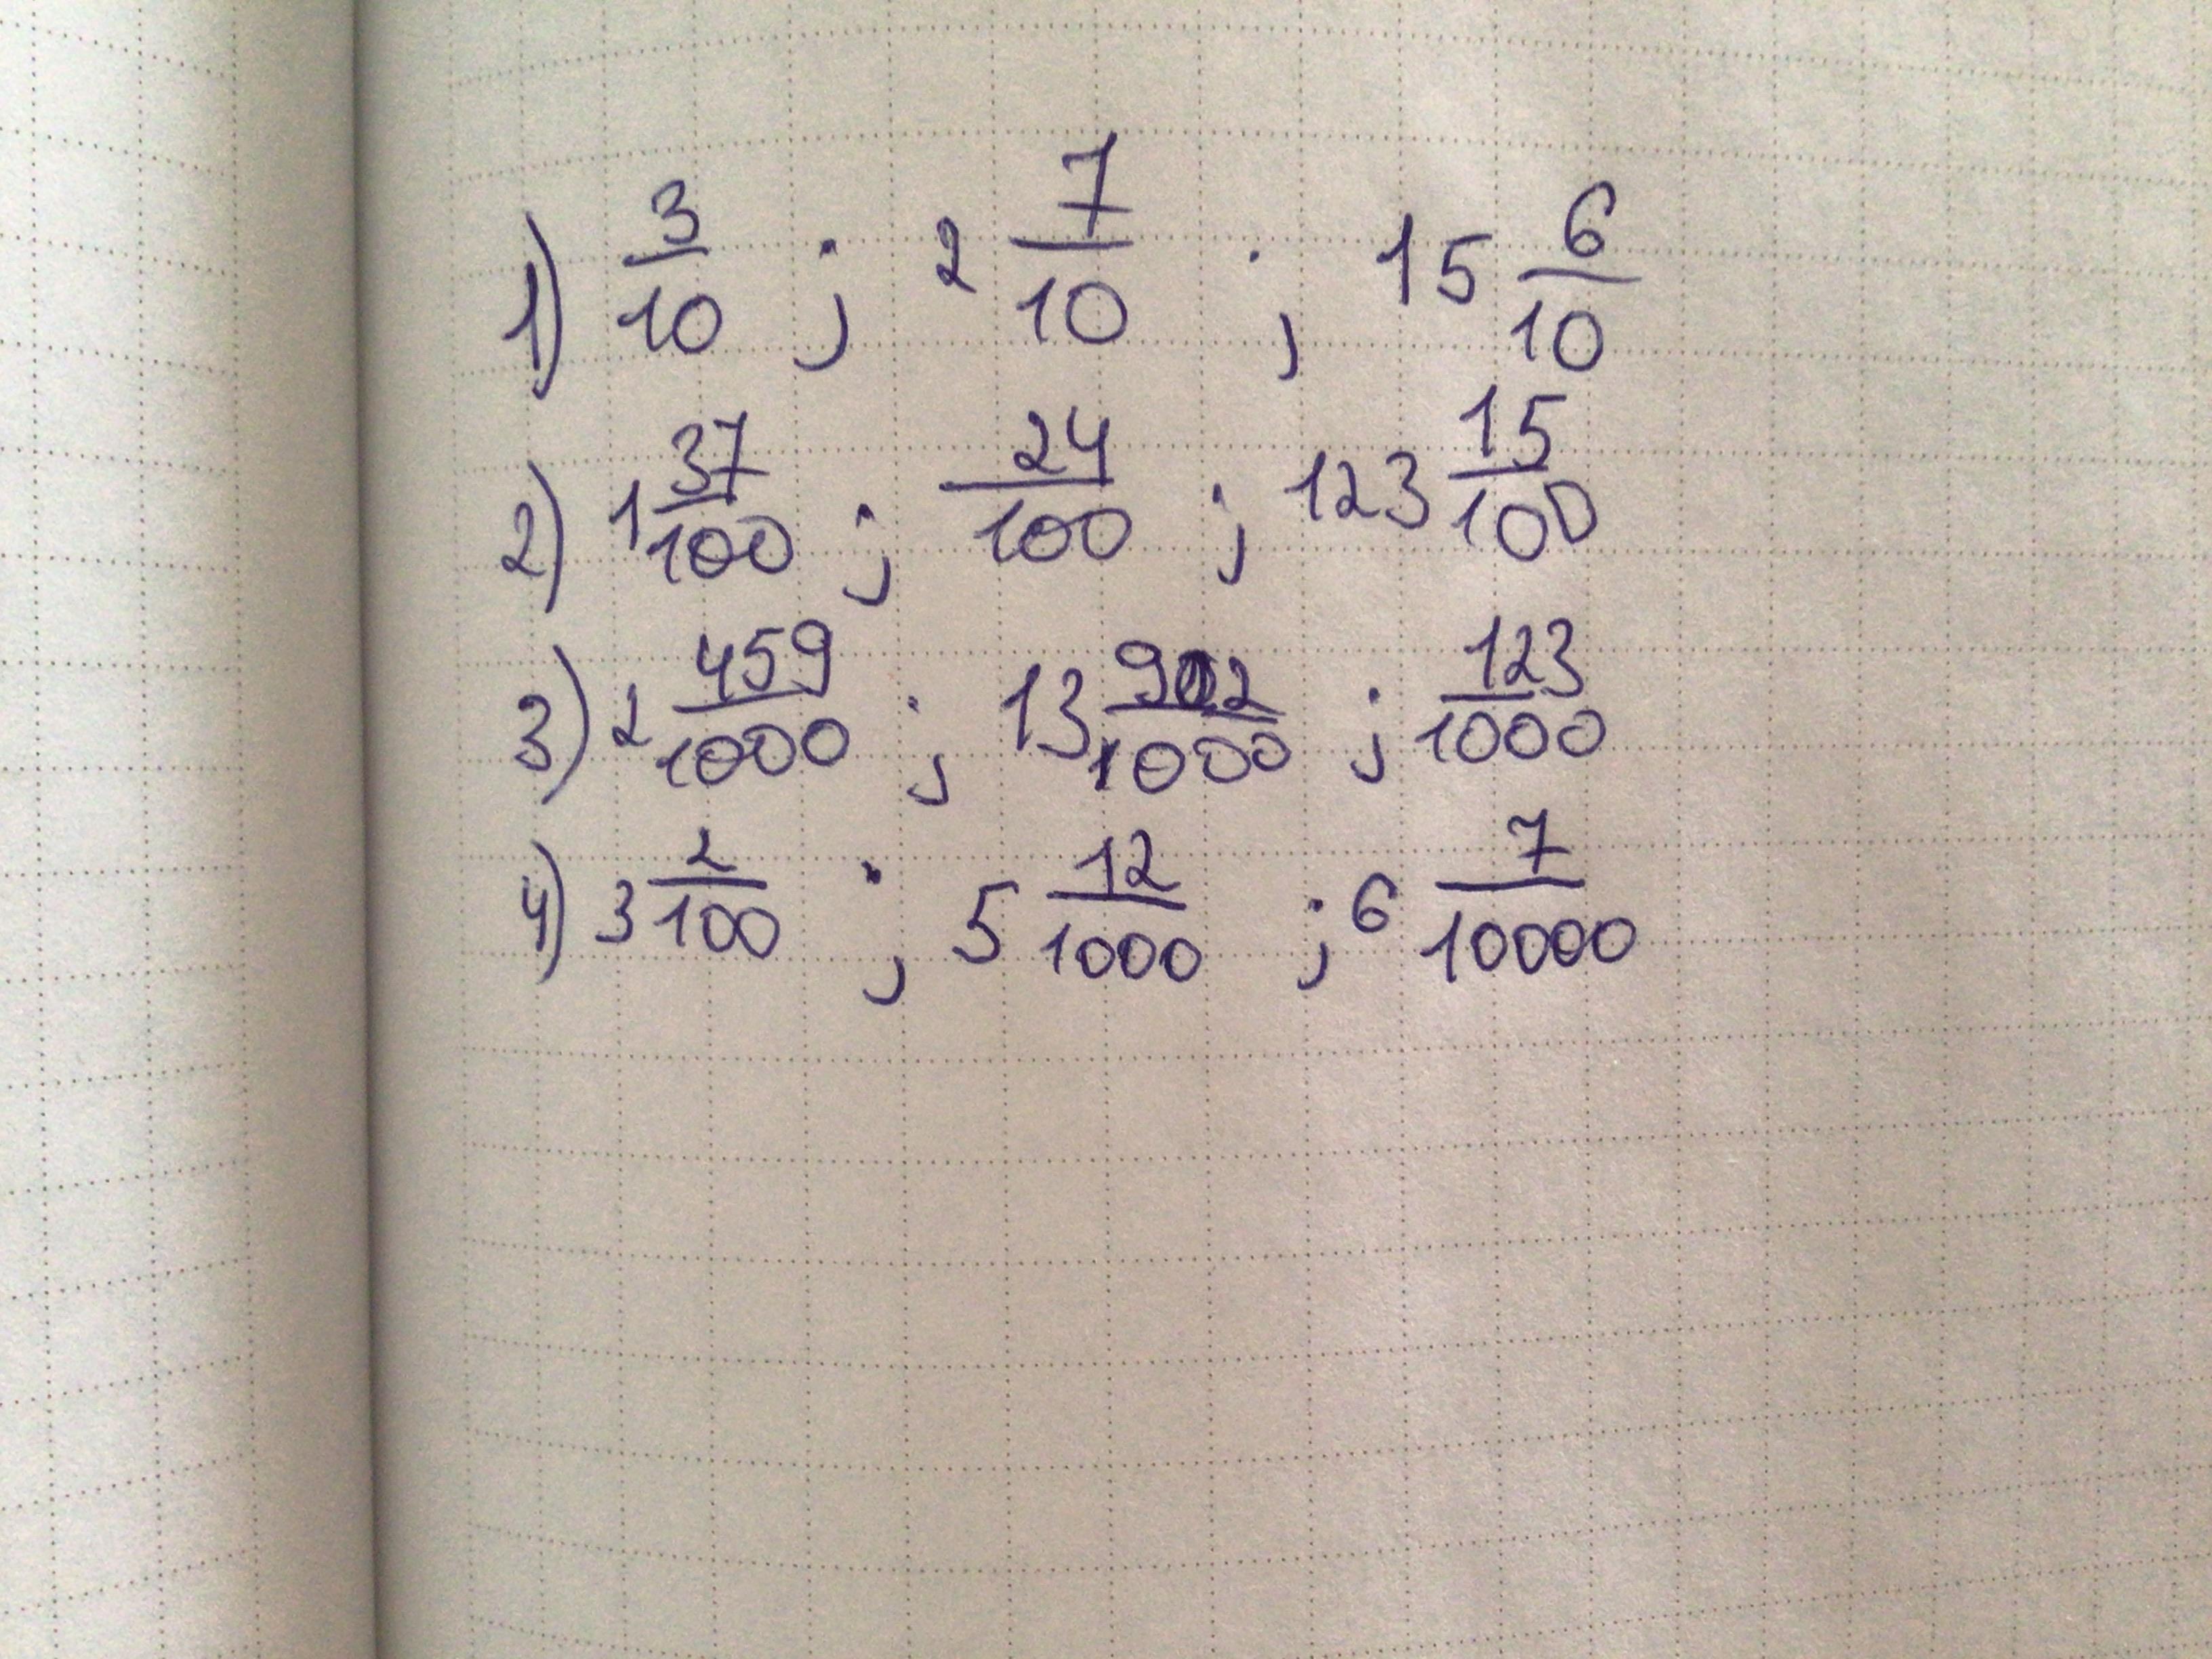 1) 3/10 ; 2 7/10 ; 15 6/10
2) 1 37/100 ; 24/100 ; 123 15/100
3) 2 459/1000 ; 13 902/1000 ; 123/1000
4) 3 2/100 ; 5 12/1000 ; 6 7/10000